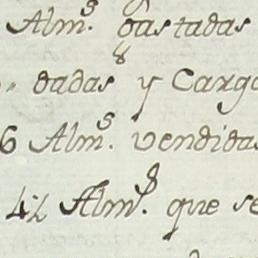 Alm.s gastadas
dadas y Carg
6 Alm.s vendidas
4½ Alm.s que se